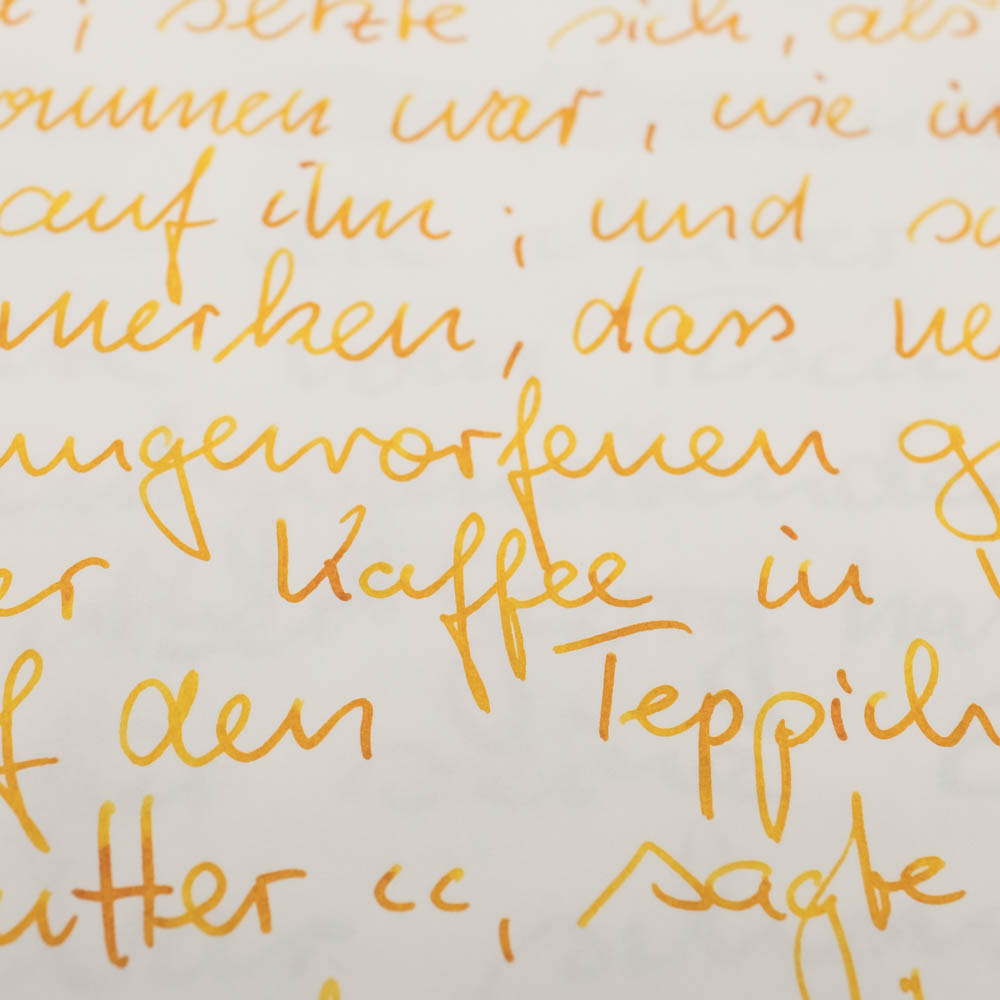 ; setzte sich, als
ommen war, wie in
auf ihn; und
merken, dass ne
umgeworfenen g
er Kaffee in
f den Teppich
utter“, sagte